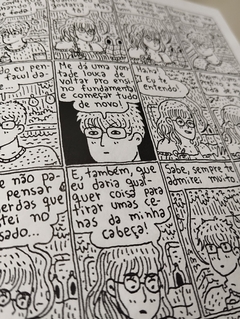 do eu pen-
Me dá uma von-
tade louca de
voltar pro ensi
no fundamenta
e começar tudo
de novo!
Haha!
Eu te
entendo!
e não pa
pensar
erdas que
tei no
sado...
E, também, que
eu daria qual-
quer coisa para
tirar umas ce-
nas da minha
cabeça!
Sabe, sempre te
admirei muito.